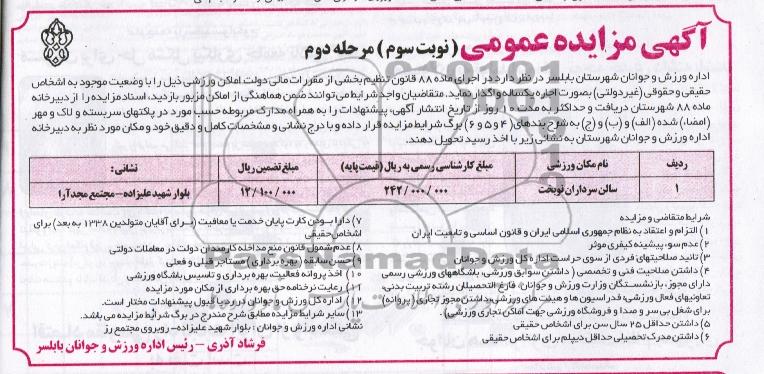 آگهی مزایده عمومی (نوبت سوم) مرحله دوم
اداره ورزش و جوانان شهرستان بابلسر در نظر دارد در اجرای ماده ۸۸ قانون تنظیم بخشی از مقررات مالی دولت اماکن ورزشی ذیل را با وضعیت موجود به اشخاص
حقیقی و حقوقی (غیردولتی) بصورت اجاره یکساله واگذار نماید. متقاضیان واجد شرایط می‌توانند ضمن هماهنگی از اماکن مزبور بازدید، اسناد مزایده را از دبیرخانه
ماده ۸۸ شهرستان دریافت و حداکثر به مدت ۱۰ روز از تاریخ انتشار آگهی، پیشنهادات را به همراه مدارک مربوطه حسب مورد در پاکتهای سربسته و لاک و مهر
(امضاء) شده (الف) و (ب) و (ج) به شرح بندهای (۴ و ۵ و ۶) برگ شرایط مزایده قرار داده و با درج نشانی و مشخصات کامل و دقیق خود و مکان مورد نظر به دبیرخانه
اداره ورزش و جوانان شهرستان به نشانی زیر با اخذ رسید تحویل دهند.
ردیف نام مکان ورزشی مبلغ کارشناسی رسمی به ریال (قیمت پایه) مبلغ تضمین ریال نشانی:
۱ سالن سرداران نوبخت ۲۴۲/۰۰۰/۰۰۰ ۱۲/۱۰۰/۰۰۰ بلوار شهید علیزاده – مجتمع مجدآرا
شرایط متقاضی و مزایده
۱) التزام و اعتقاد به نظام جمهوری اسلامی ایران و قانون اساسی و تابعیت ایران
۲) عدم سوء پیشینه کیفری موثر
۳) تائید صلاحیتهای فردی از سوی حراست اداره کل ورزش و جوانان
۴) داشتن صلاحیت فنی و تخصصی (داشتن سوابق ورزشی، باشگاههای ورزشی رسمی
دارای مجوز، بازنشستگان وزارت ورزش و جوانان، فارغ التحصیلان رشته تربیت بدنی،
تعاونیهای فعال ورزشی، فدراسیون ها و هیئت های ورزشی، داشتن مجوز تجاری (پروانه)
برای شغل بی سر و صدا و فروشگاه ورزشی جهت اماکن تجاری ورزشی).
۵) داشتن حداقل ۲۵ سال سن برای اشخاص حقیقی
۶) داشتن مدرک تحصیلی حداقل دیپلم برای اشخاص حقیقی
۷) دارا بودن کارت پایان خدمت یا معافیت (برای آقایان متولدین ۱۳۳۸ به بعد) برای
اشخاص حقیقی
۸) عدم شمول قانون منع مداخله کارمندان دولت در معاملات دولتی
۹) حسن سابقه (بهره برداری) مستاجر قبلی و فعلی
۱۰) اخذ پروانه فعالیت، بهره برداری و تاسیس باشگاه ورزشی
۱۱) رعایت نرخنامه حق بهره برداری از مکان مورد مزایده
۱۲) اداره کل ورزش و جوانان در رد یا قبول پیشنهادات مختار است.
۱۳) سایر شرایط مزایده مطابق شرح مندرج در برگ شرایط مزایده می باشد.
نشانی اداره ورزش و جوانان : بلوار شهید علیزاده – روبروی مجتمع رز
فرشاد آذری – رئیس اداره ورزش و جوانان بابلسر